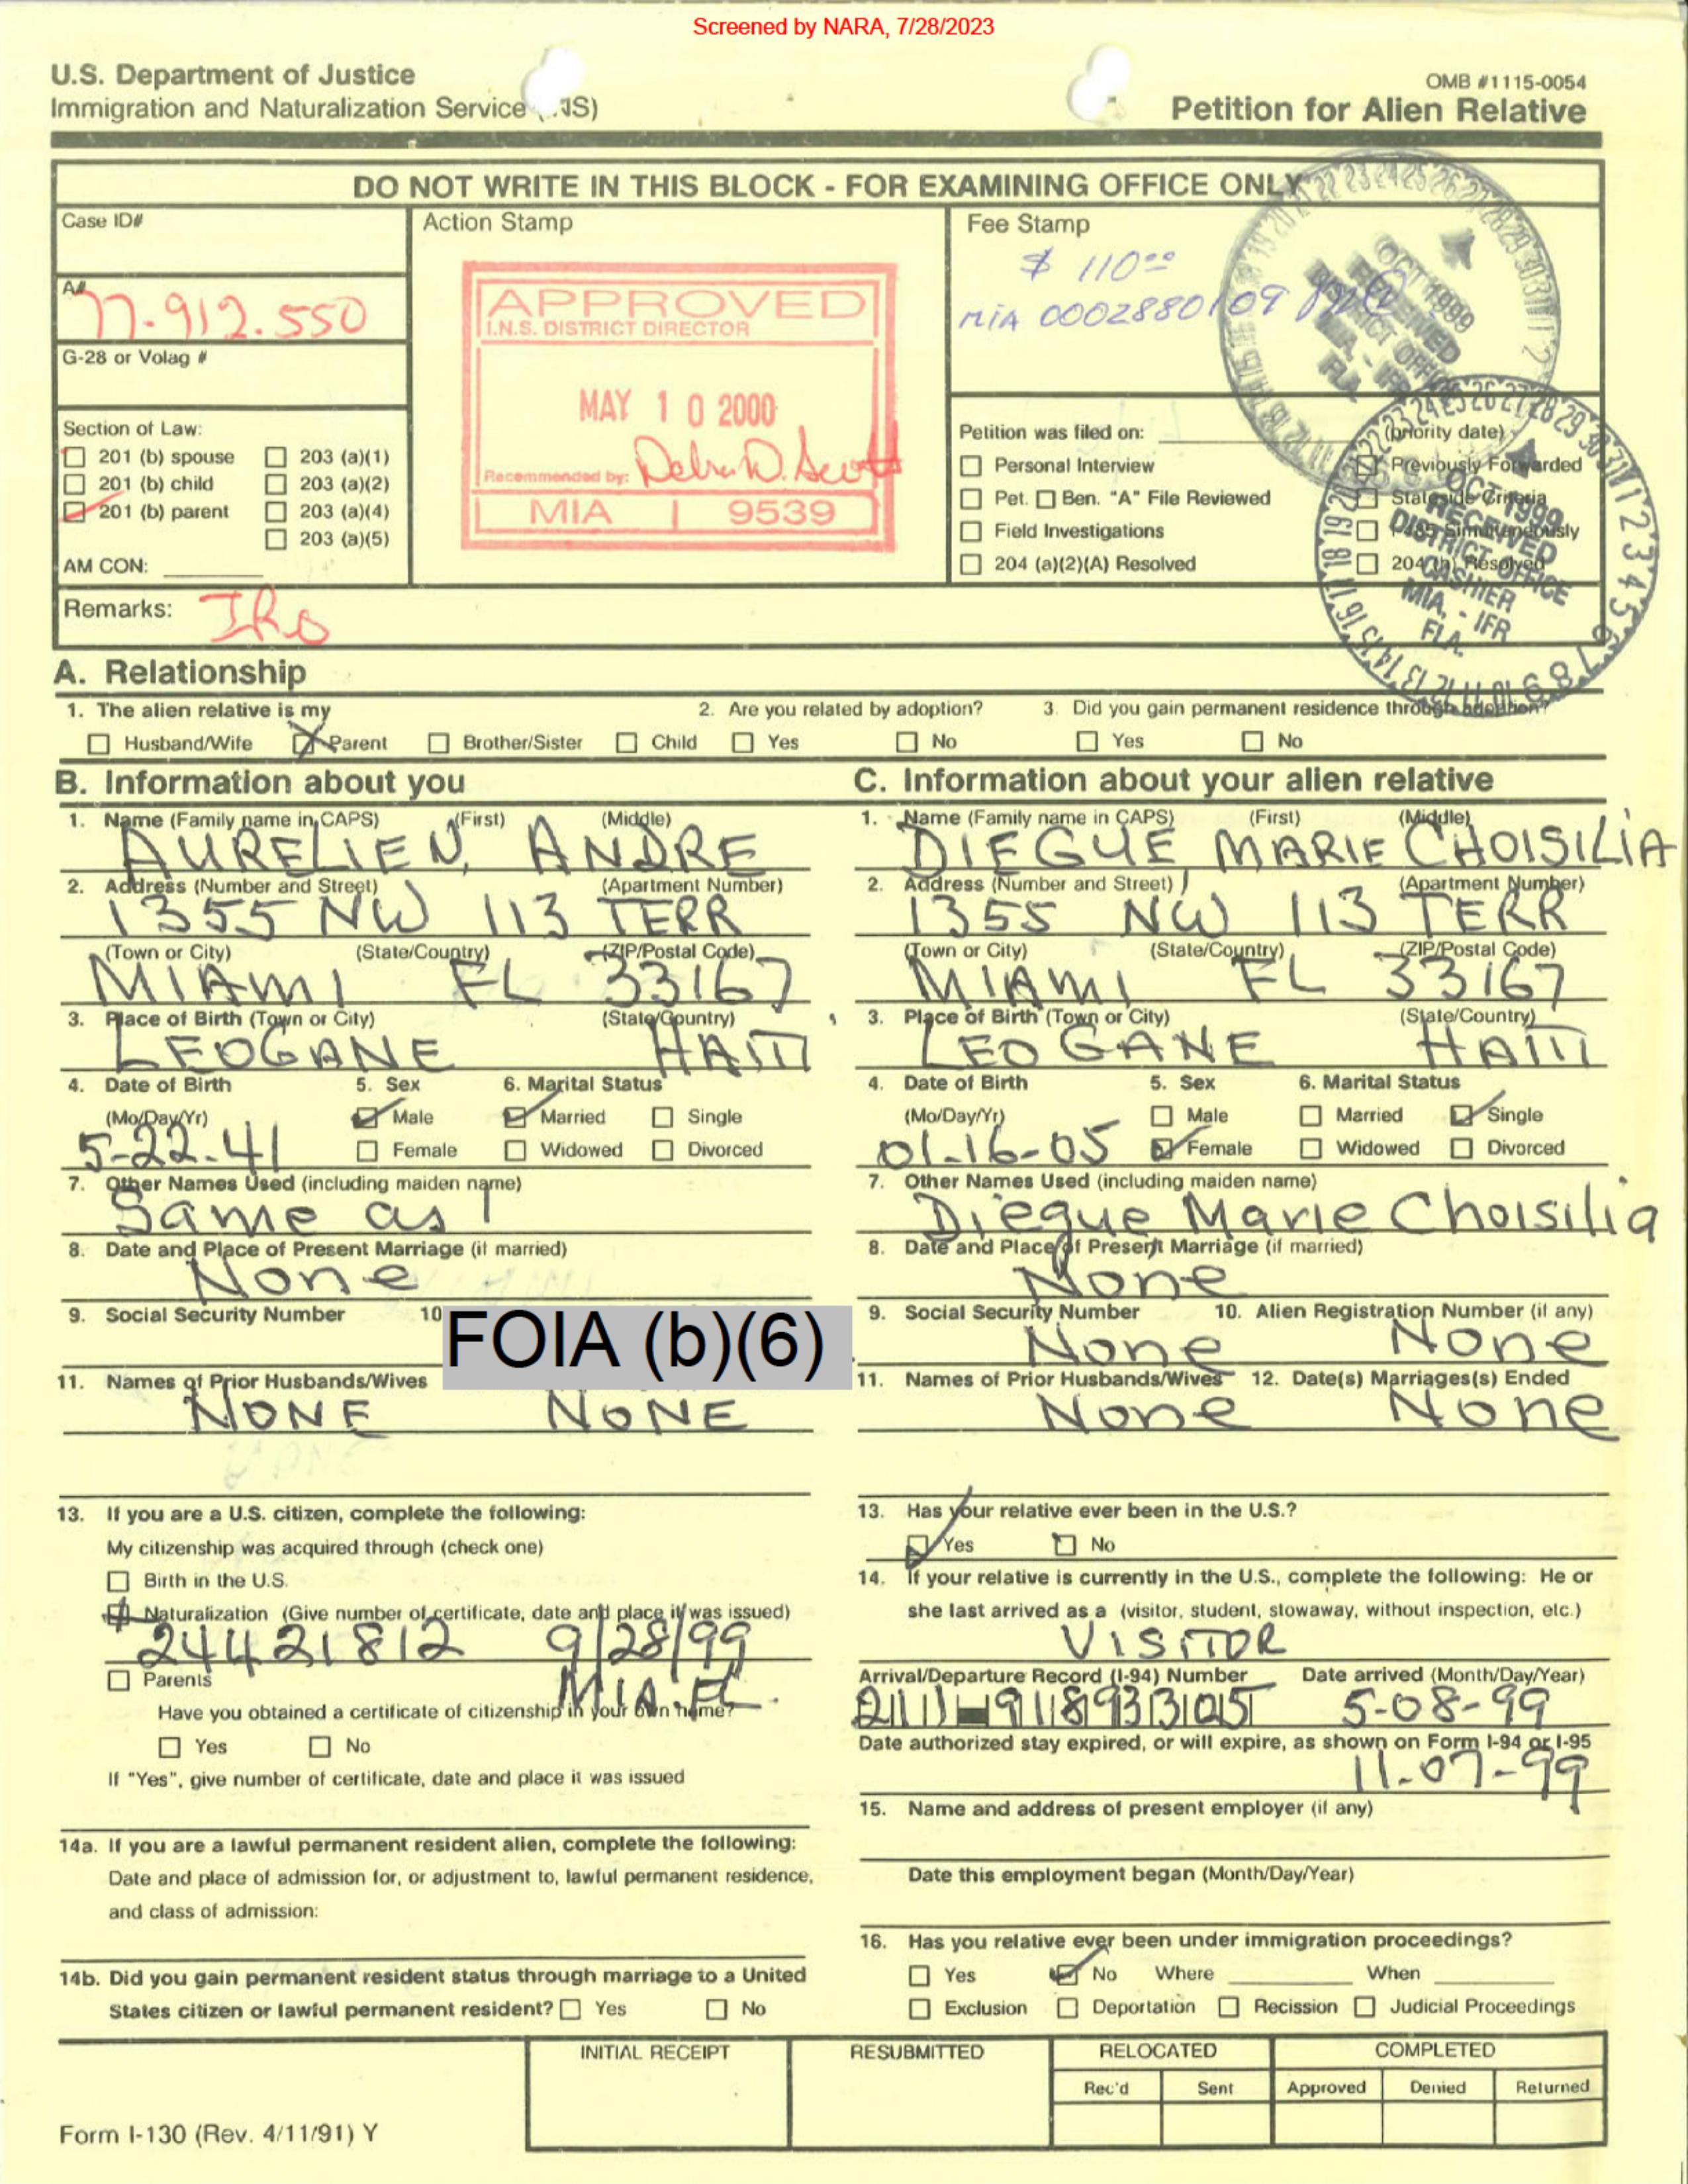 Screened by NARA, 7/28/2023
U.S. Department of Justice
Immigration and Naturalization Service
OMB #1115-0054
Petition for Alien Relative
DO NOT WRITE IN THIS BLOCK - FOR EXAMINING OFFICE ONLY
Case ID#
Action Stamp
Fee Stamp
$ 110.00
MIA 0002880109
A#
77.912.550
G-28 or Volag #
APPROVED
I.N.S. DISTRICT DIRECTOR
MAY 10 2000
Recommended by: Debra D. Scott
MIA 9539
OCT 1999
RECEIVED
DISTRICT OFFICE
MIA. - IFR
FLA.
Section of Law:
201 (b) spouse 203 (a)(1)
201 (b) child 203 (a)(2)
201 (b) parent 203 (a)(4)
203 (a)(5)
AM CON:
Petition was filed on: (priority date)
Personal Interview Previously Forwarded
Pet. Ben. "A" File Reviewed Stateside Criteria
Field Investigations I-485 Simultaneously
204 (a)(2)(A) Resolved 204 (h) Resolved
OCT 1999
RECEIVED
DISTRICT OFFICE
CASHIER
MIA. - IFR
FLA.
Remarks:
A. Relationship
1. The alien relative is my
2. Are you related by adoption?
3. Did you gain permanent residence through adoption?
Husband/Wife Parent Brother/Sister Child Yes No Yes No
B. Information about you
1. Name (Family name in CAPS) (First) (Middle)
AURELIEN, ANDRE
2. Address (Number and Street) (Apartment Number)
1355 NW 113 TERR
(Town or City) (State/Country) (ZIP/Postal Code)
MIAMI FL 33167
3. Place of Birth (Town or City) (State/Country)
LEOGANE HAITI
4. Date of Birth 5. Sex 6. Marital Status
(Mo/Day/Yr) Male Married Single
5-22-41 Female Widowed Divorced
7. Other Names Used (including maiden name)
Same as 1
8. Date and Place of Present Marriage (if married)
None
9. Social Security Number 10
FOIA (b)(6)
11. Names of Prior Husbands/Wives
NONE NONE
13. If you are a U.S. citizen, complete the following:
My citizenship was acquired through (check one)
Birth in the U.S.
Naturalization (Give number of certificate, date and place it was issued)
24421812 9/28/99
Parents MIA. FL.
Have you obtained a certificate of citizenship in your own name?
Yes No
If "Yes", give number of certificate, date and place it was issued
14a. If you are a lawful permanent resident alien, complete the following:
Date and place of admission for, or adjustment to, lawful permanent residence,
and class of admission:
14b. Did you gain permanent resident status through marriage to a United
States citizen or lawful permanent resident? Yes No
C. Information about your alien relative
1. Name (Family name in CAPS) (First) (Middle)
DIEGUE MARIE CHOISILIA
2. Address (Number and Street) (Apartment Number)
1355 NW 113 TERR
(Town or City) (State/Country) (ZIP/Postal Code)
MIAMI FL 33167
3. Place of Birth (Town or City) (State/Country)
LEOGANE HAITI
4. Date of Birth 5. Sex 6. Marital Status
(Mo/Day/Yr) Male Married Single
01-16-05 Female Widowed Divorced
7. Other Names Used (including maiden name)
Diegue Marie Choisilia
8. Date and Place of Present Marriage (if married)
None
9. Social Security Number 10. Alien Registration Number (if any)
None None
11. Names of Prior Husbands/Wives 12. Date(s) Marriages(s) Ended
None None
13. Has your relative ever been in the U.S.?
Yes No
14. If your relative is currently in the U.S., complete the following: He or
she last arrived as a (visitor, student, stowaway, without inspection, etc.)
VISITOR
Arrival/Departure Record (I-94) Number Date arrived (Month/Day/Year)
5-08-99
Date authorized stay expired, or will expire, as shown on Form I-94 or I-95
11-07-99
15. Name and address of present employer (if any)
Date this employment began (Month/Day/Year)
16. Has you relative ever been under immigration proceedings?
Yes No Where When
Exclusion Deportation Recission Judicial Proceedings
INITIAL RECEIPT RESUBMITTED RELOCATED COMPLETED
Rec'd Sent Approved Denied Returned
Form I-130 (Rev. 4/11/91) Y